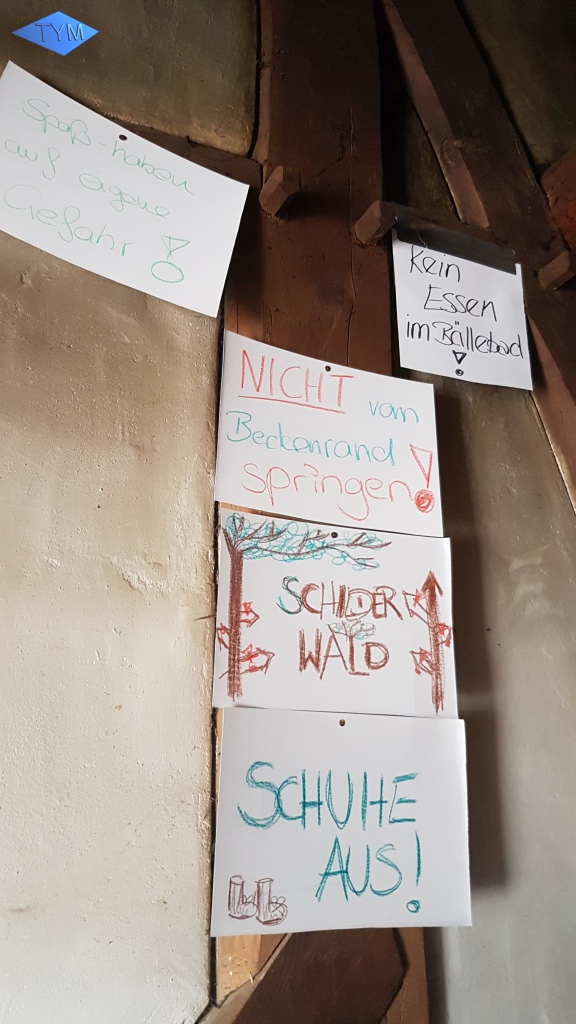 TYM
Spaß-haben
auf eigene
Gefahr!
Kein
Essen
im Bällebad
!
NICHT vom
Beckenrand
springen!
SCHILDER
WALD
SCHUHE
AUS!